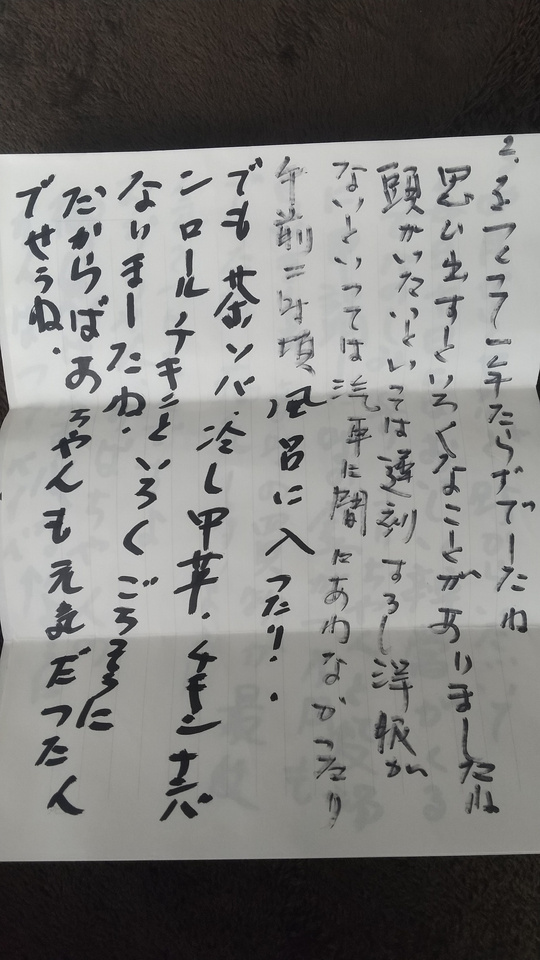 2.
をつくって一年たらずでしたね
思ひ出すといろくなことがありましたね
頭がいたいといっては遅刻するし洋服が
ないといっては汽車に間にあわなかったり
午前二時頃風呂に入ったり.
でも ソバ.冷し甲革.チキンナンバ
ンロールチキンといろくごちそうに
なりましたね.
だからばあちゃんも元気だったん
でせうね.